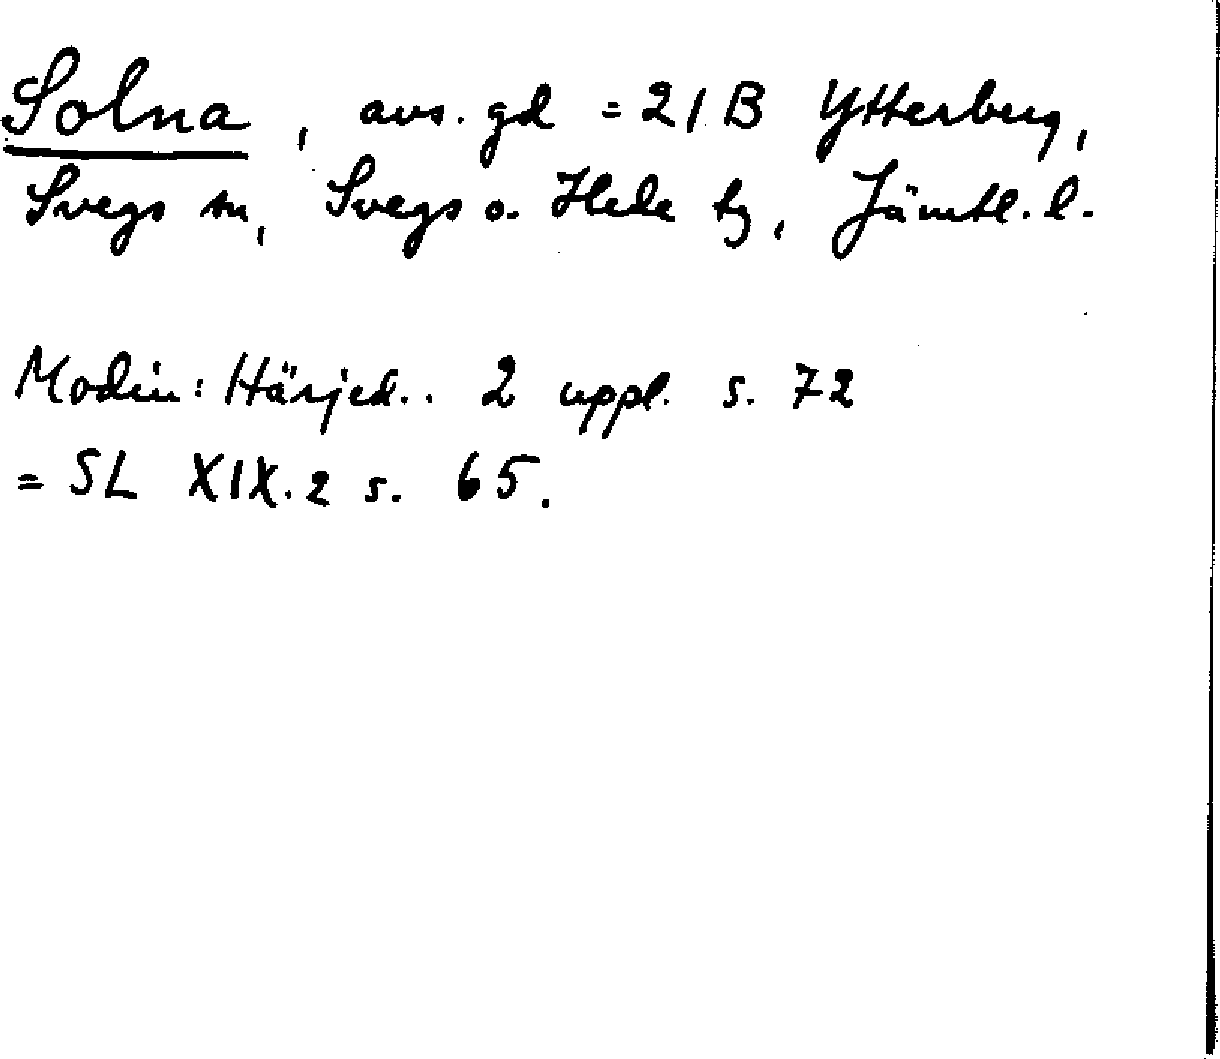 Solna, avs. gd = 21 B Ytterberg,
Svegs sn, Svegs o. Hede tg, Jämtl. l.
Modin: Härjed.. 2 uppl. s. 72
= SL XIX.2 s. 65.